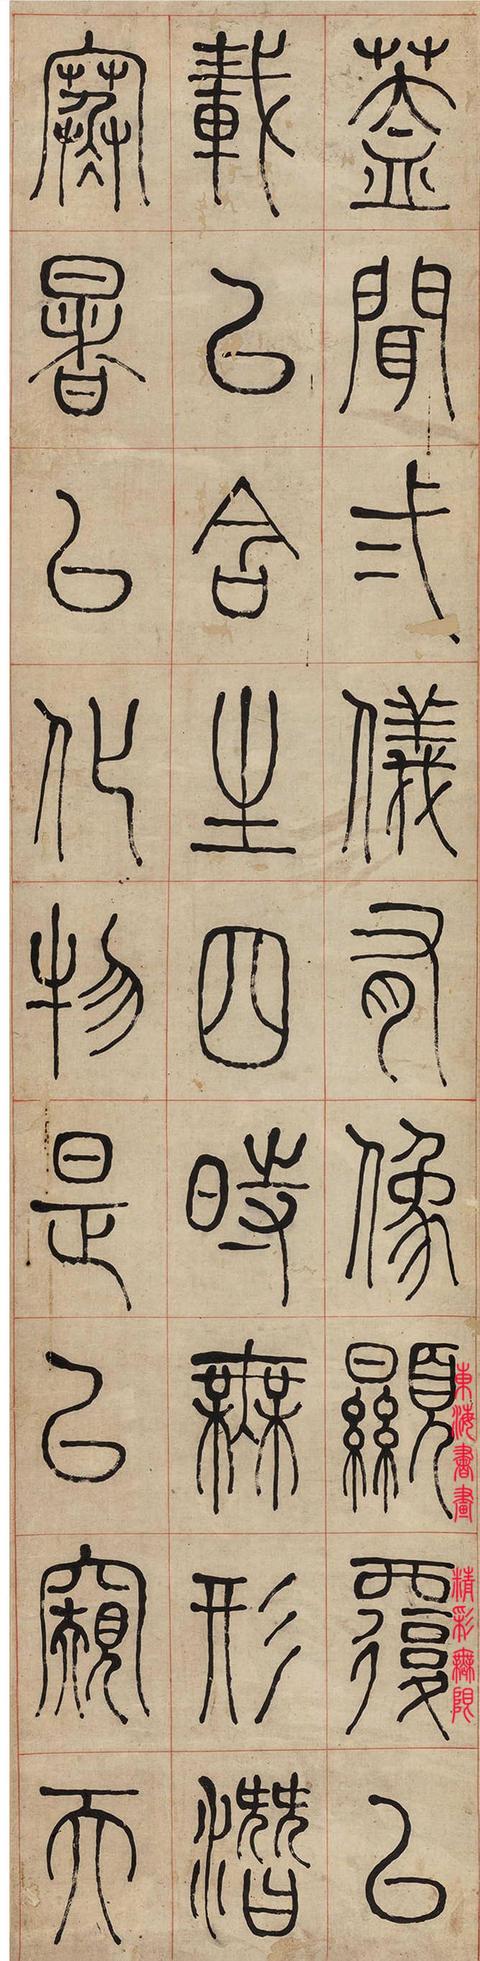 蓋聞弍儀有像顯覆㠯
載㠯含生四時無形潛
寒暑㠯化物是㠯窺天
東海書畫
精彩無限